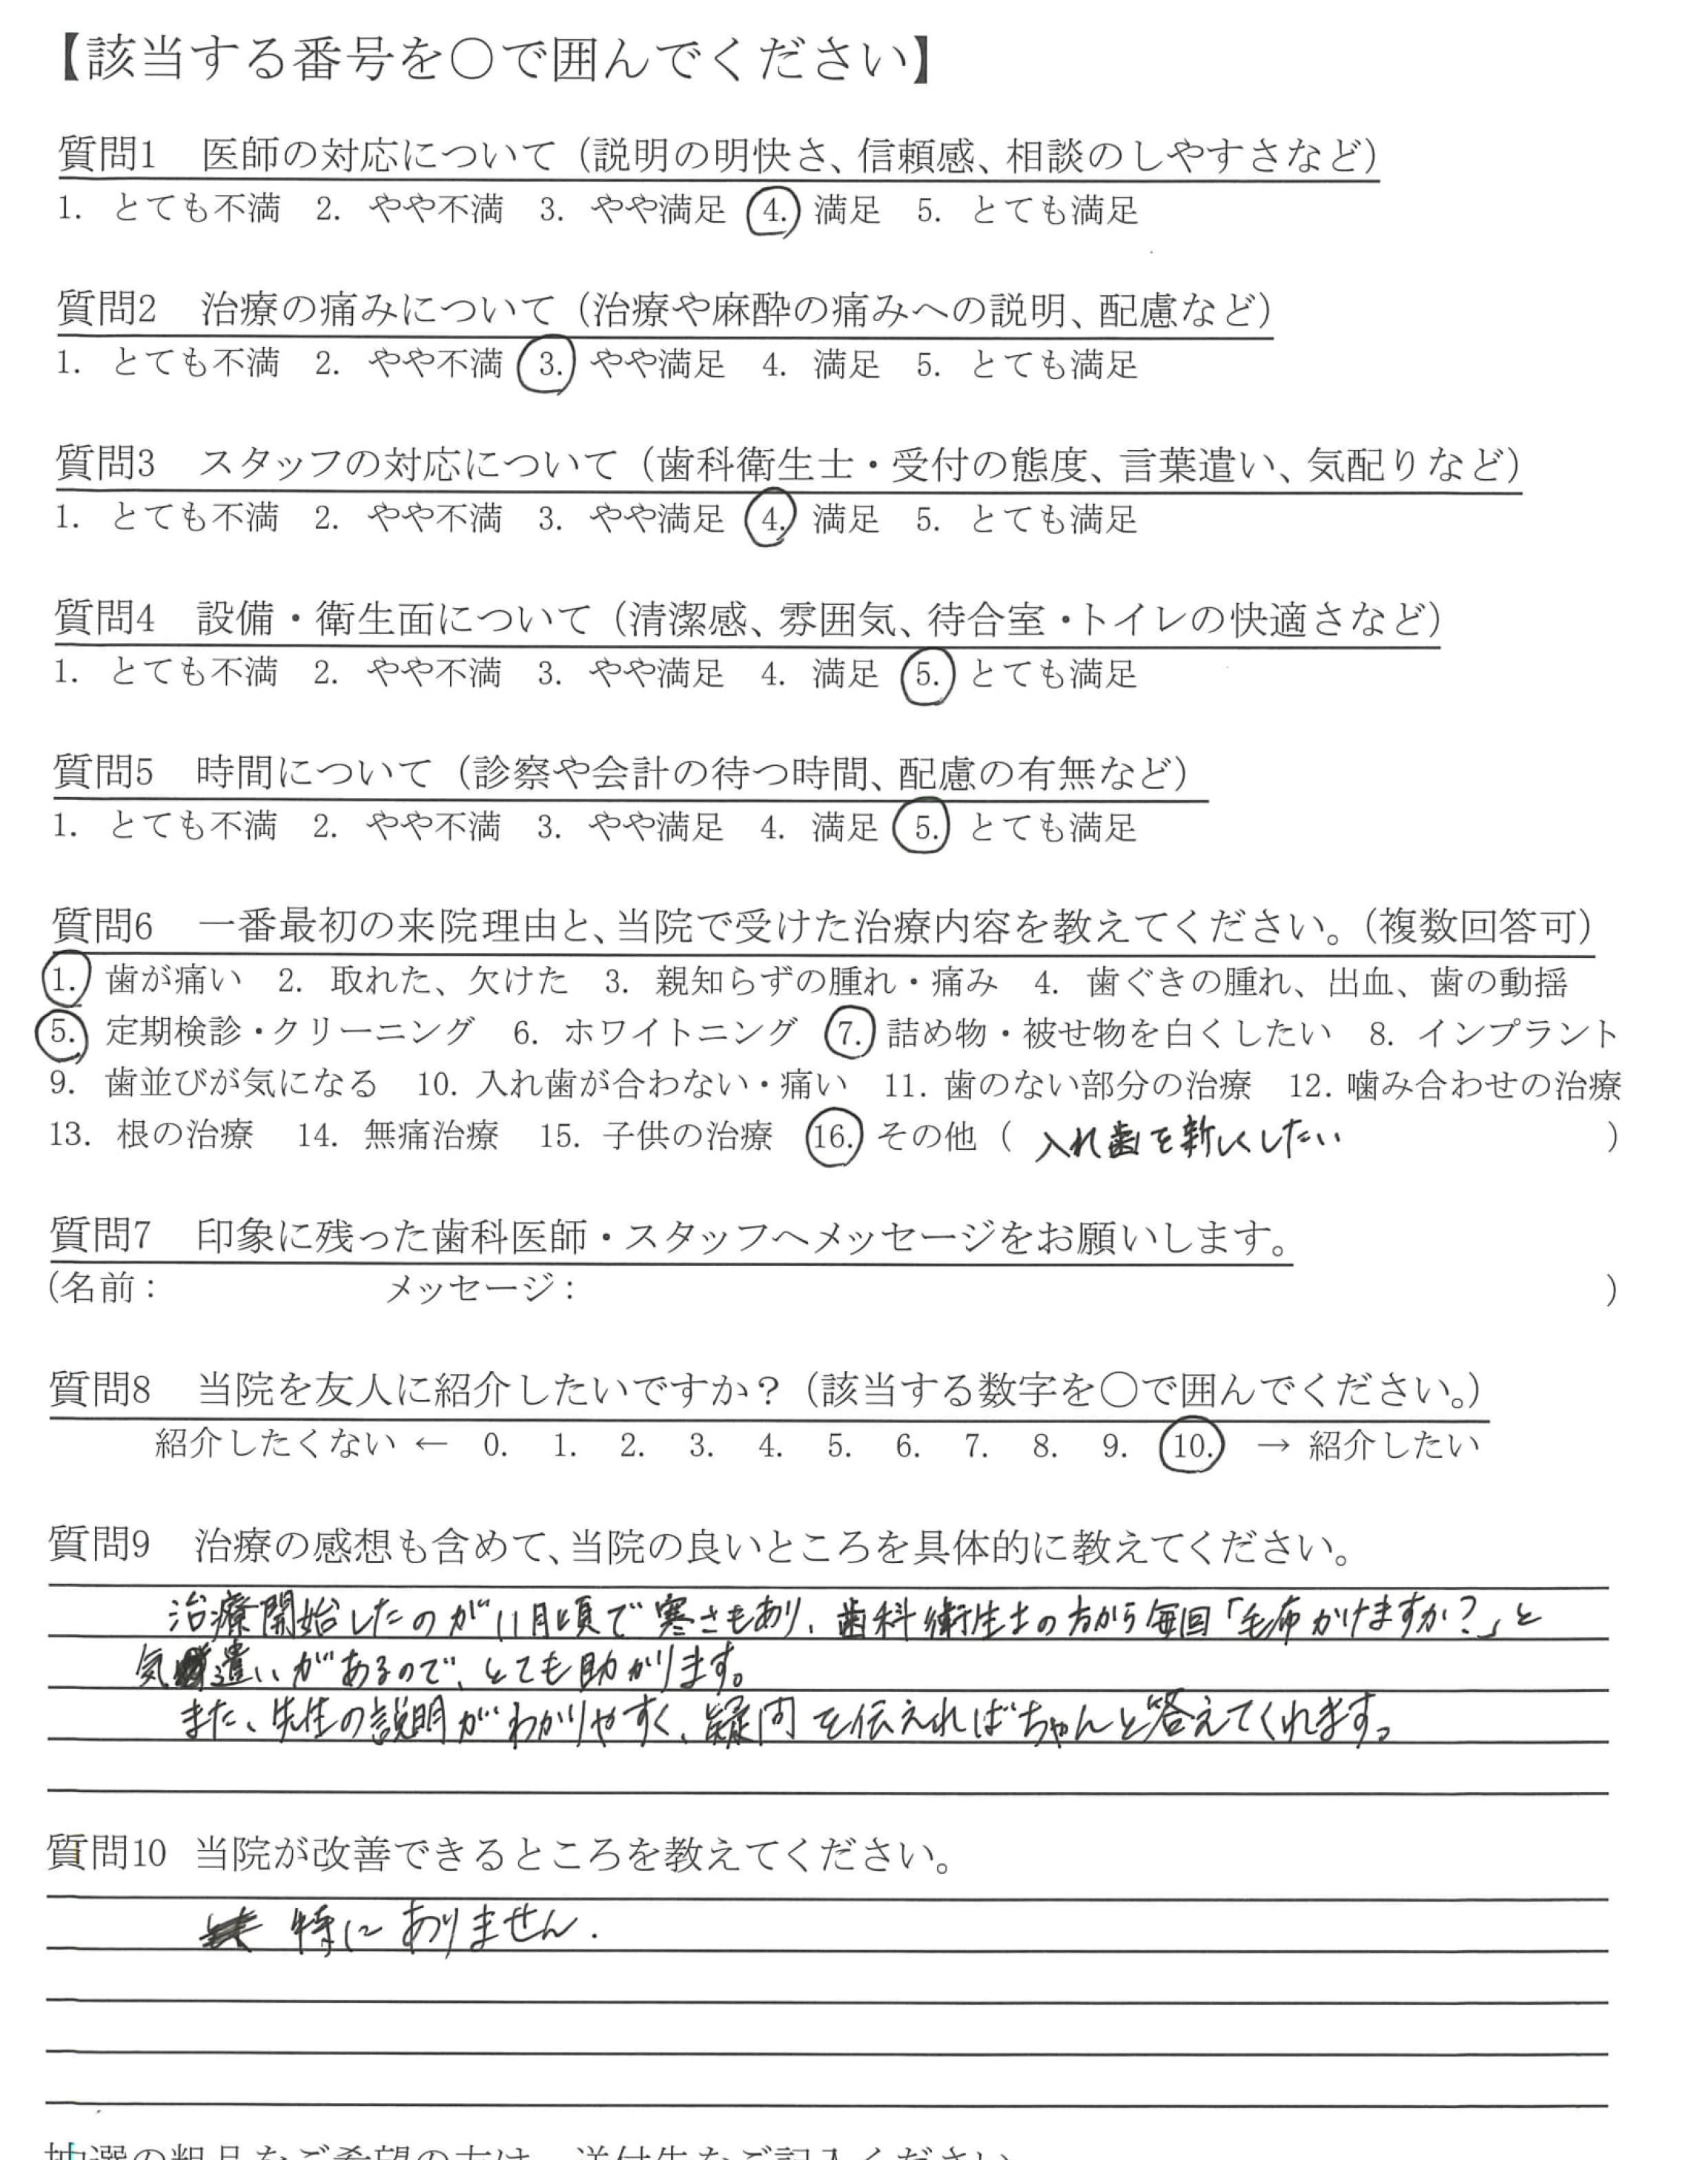 【該当する番号を〇で囲んでください】
質問1 医師の対応について（説明の明快さ、信頼感、相談のしやすさなど）
1. とても不満 2. やや不満 3. やや満足 4. 満足 5. とても満足
質問2 治療の痛みについて（治療や麻酔の痛みへの説明、配慮など）
1. とても不満 2. やや不満 3. やや満足 4. 満足 5. とても満足
質問3 スタッフの対応について（歯科衛生士・受付の態度、言葉遣い、気配りなど）
1. とても不満 2. やや不満 3. やや満足 4. 満足 5. とても満足
質問4 設備・衛生面について（清潔感、雰囲気、待合室・トイレの快適さなど）
1. とても不満 2. やや不満 3. やや満足 4. 満足 5. とても満足
質問5 時間について（診察や会計の待つ時間、配慮の有無など）
1. とても不満 2. やや不満 3. やや満足 4. 満足 5. とても満足
質問6 一番最初の来院理由と、当院で受けた治療内容を教えてください。（複数回答可）
1. 歯が痛い 2. 取れた、欠けた 3. 親知らずの腫れ・痛み 4. 歯ぐきの腫れ、出血、歯の動揺
5. 定期検診・クリーニング 6. ホワイトニング 7. 詰め物・被せ物を白くしたい 8. インプラント
9. 歯並びが気になる 10. 入れ歯が合わない・痛い 11. 歯のない部分の治療 12. 噛み合わせの治療
13. 根の治療 14. 無痛治療 15. 子供の治療 16. その他（ 入れ歯を新しくしたい ）
質問7 印象に残った歯科医師・スタッフへメッセージをお願いします。
(名前： メッセージ： )
質問8 当院を友人に紹介したいですか？（該当する数字を〇で囲んでください。）
紹介したくない ← 0. 1. 2. 3. 4. 5. 6. 7. 8. 9. 10. → 紹介したい
質問9 治療の感想も含めて、当院の良いところを具体的に教えてください。
治療開始したのが11月頃で寒さもあり、歯科衛生士の方から毎回「毛布かけますか？」と
気遣いがあるので、とても助かります。
また、先生の説明がわかりやすく、疑問を伝えればちゃんと答えてくれます。
質問10 当院が改善できるところを教えてください。
特にありません.
抽選の粗品をご希望の方は、送付先をご記入ください